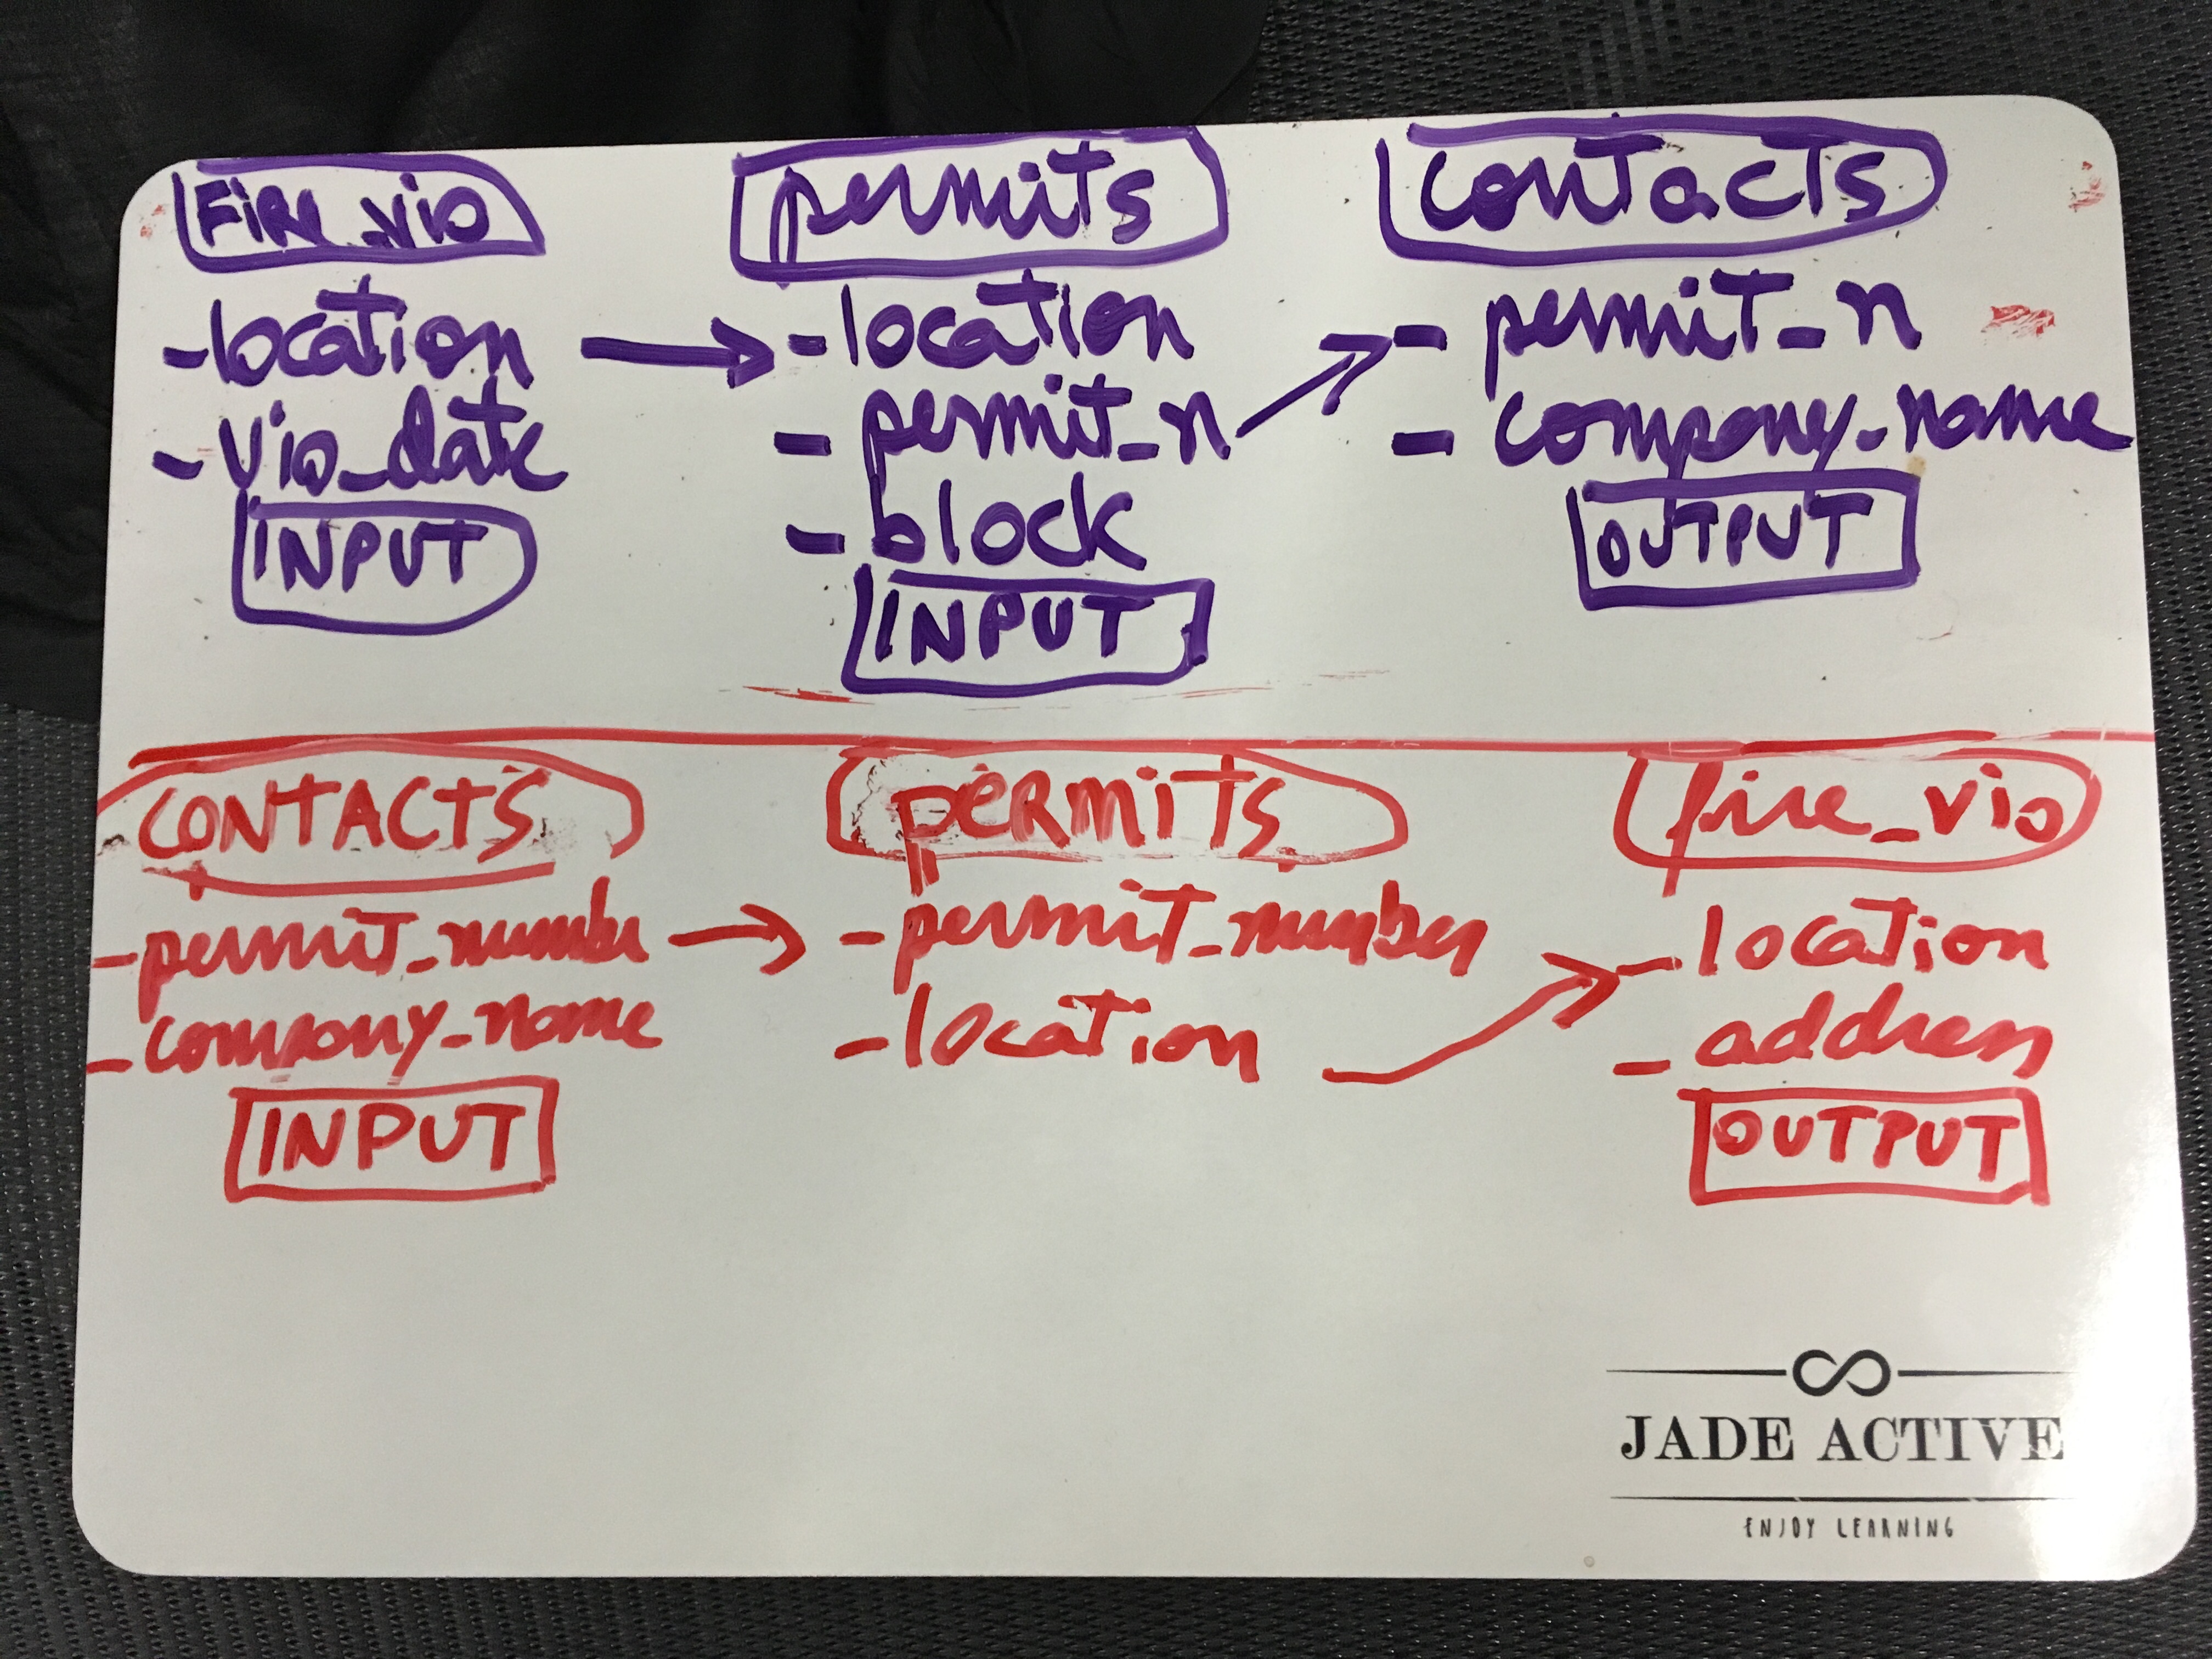 FIRE_vio
-location
- vio_date
INPUT
permits
-location
- permit_n
- block
INPUT
contacts
- permit_n
- company_name
OUTPUT
CONTACTS
-permit_number
-company_name
INPUT
PERMITS
-permit_number
-location
fire_vio
-location
- address
OUTPUT
JADE ACTIVE
ENJOY LEARNING